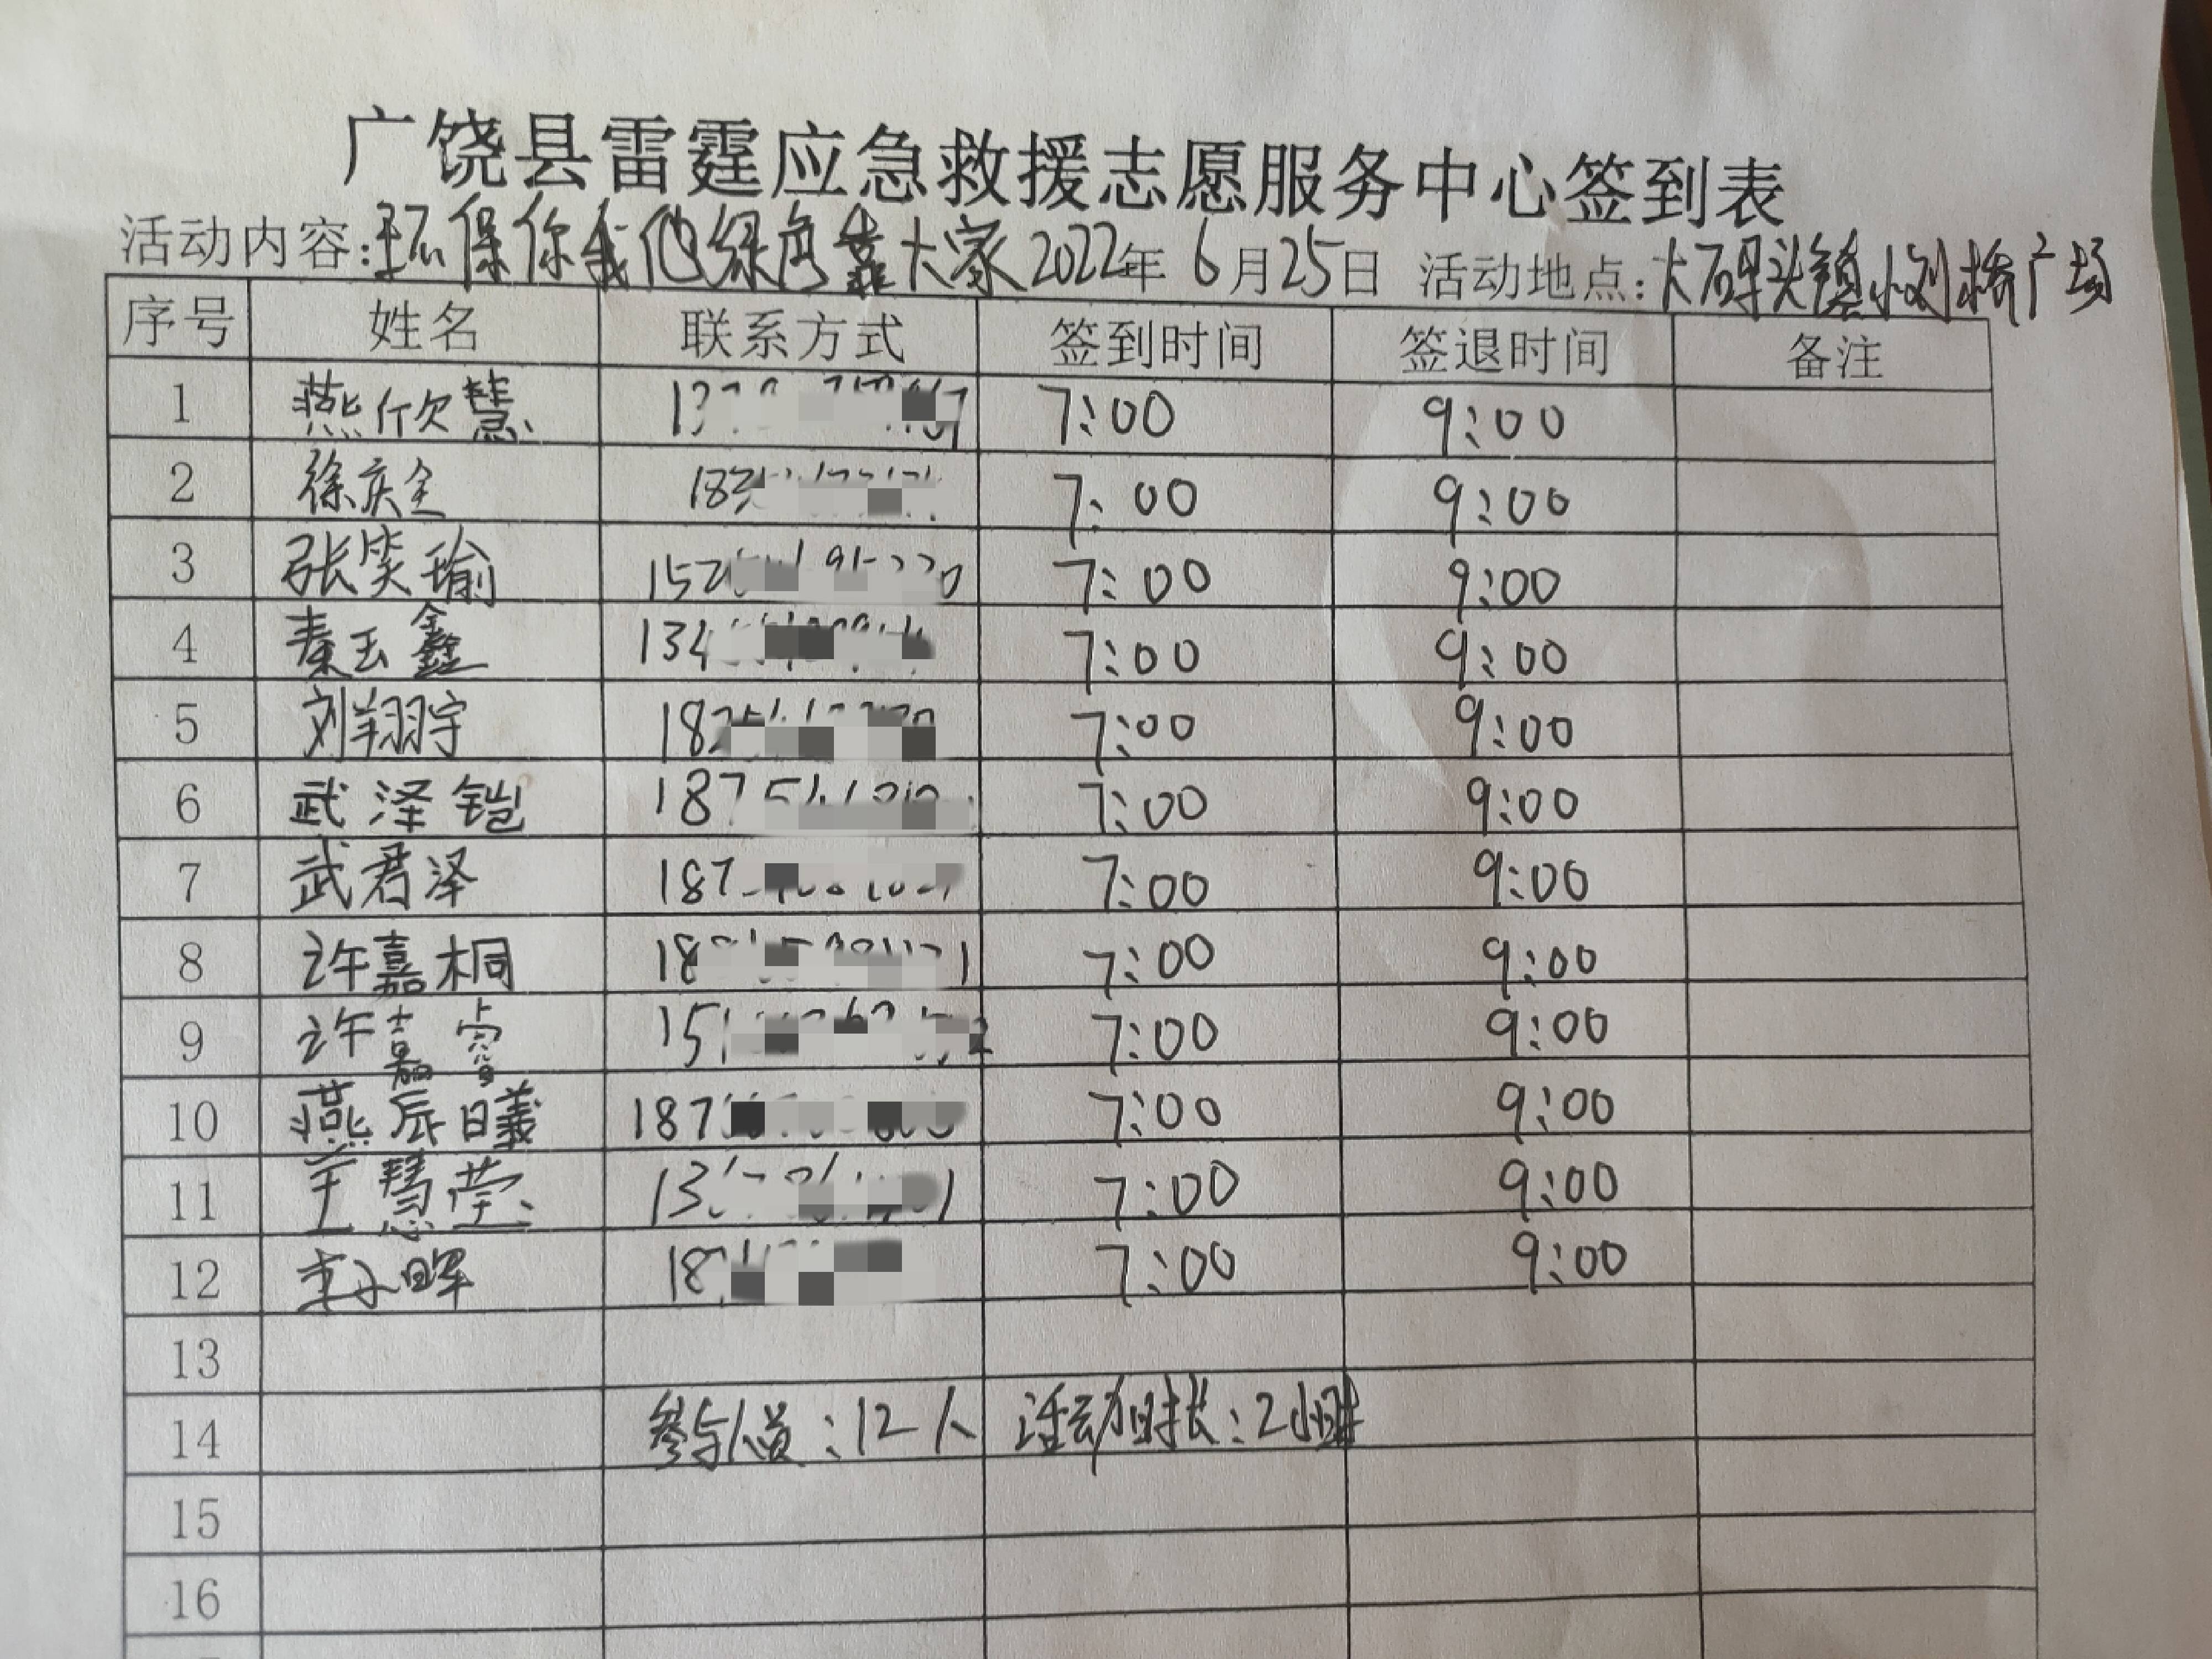 广饶县雷霆应急救援志愿服务中心签到表
活动内容:环保你我他绿色靠大家 2022年 6月25日 活动地点:大码头镇小刘桥广场
序号 姓名 联系方式 签到时间 签退时间 备注
1 燕欣慧 7:00 9:00
2 徐庆全 183 7:00 9:00
3 张笑瑜 152 7:00 9:00
4 秦玉鑫 134 7:00 9:00
5 刘翔宇 182 7:00 9:00
6 武泽铠 187 7:00 9:00
7 武君泽 187 7:00 9:00
8 许嘉桐 18 7:00 9:00
9 许嘉睿 151 7:00 9:00
10 燕辰曦 187 7:00 9:00
11 王慧莹 13 7:00 9:00
12 李小晖 18 7:00 9:00
13
14 参与人员:12人 活动时长:2小时
15
16